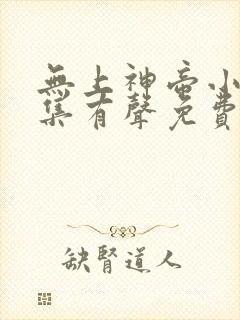 無上神帝小
集有聲免費
缺腎道人